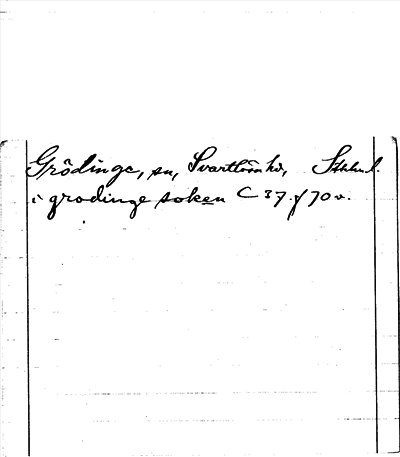 Grödinge, sn, Svartlösa hd, Sthlm l.
i grodinge soken C 37 f 70 v.